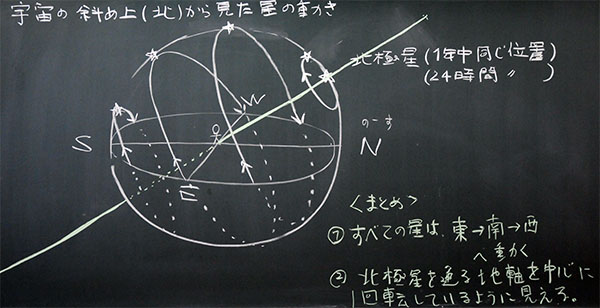 宇宙の斜め上(北)から見た星の動き
北極星(1年中同じ位置)
(24時間 〃 )
W
の-す
S
N
E
<まとめ>
① すべての星は、東→南→西
へ動く
② 北極星を通る地軸を中心に
1回転しているように見える。